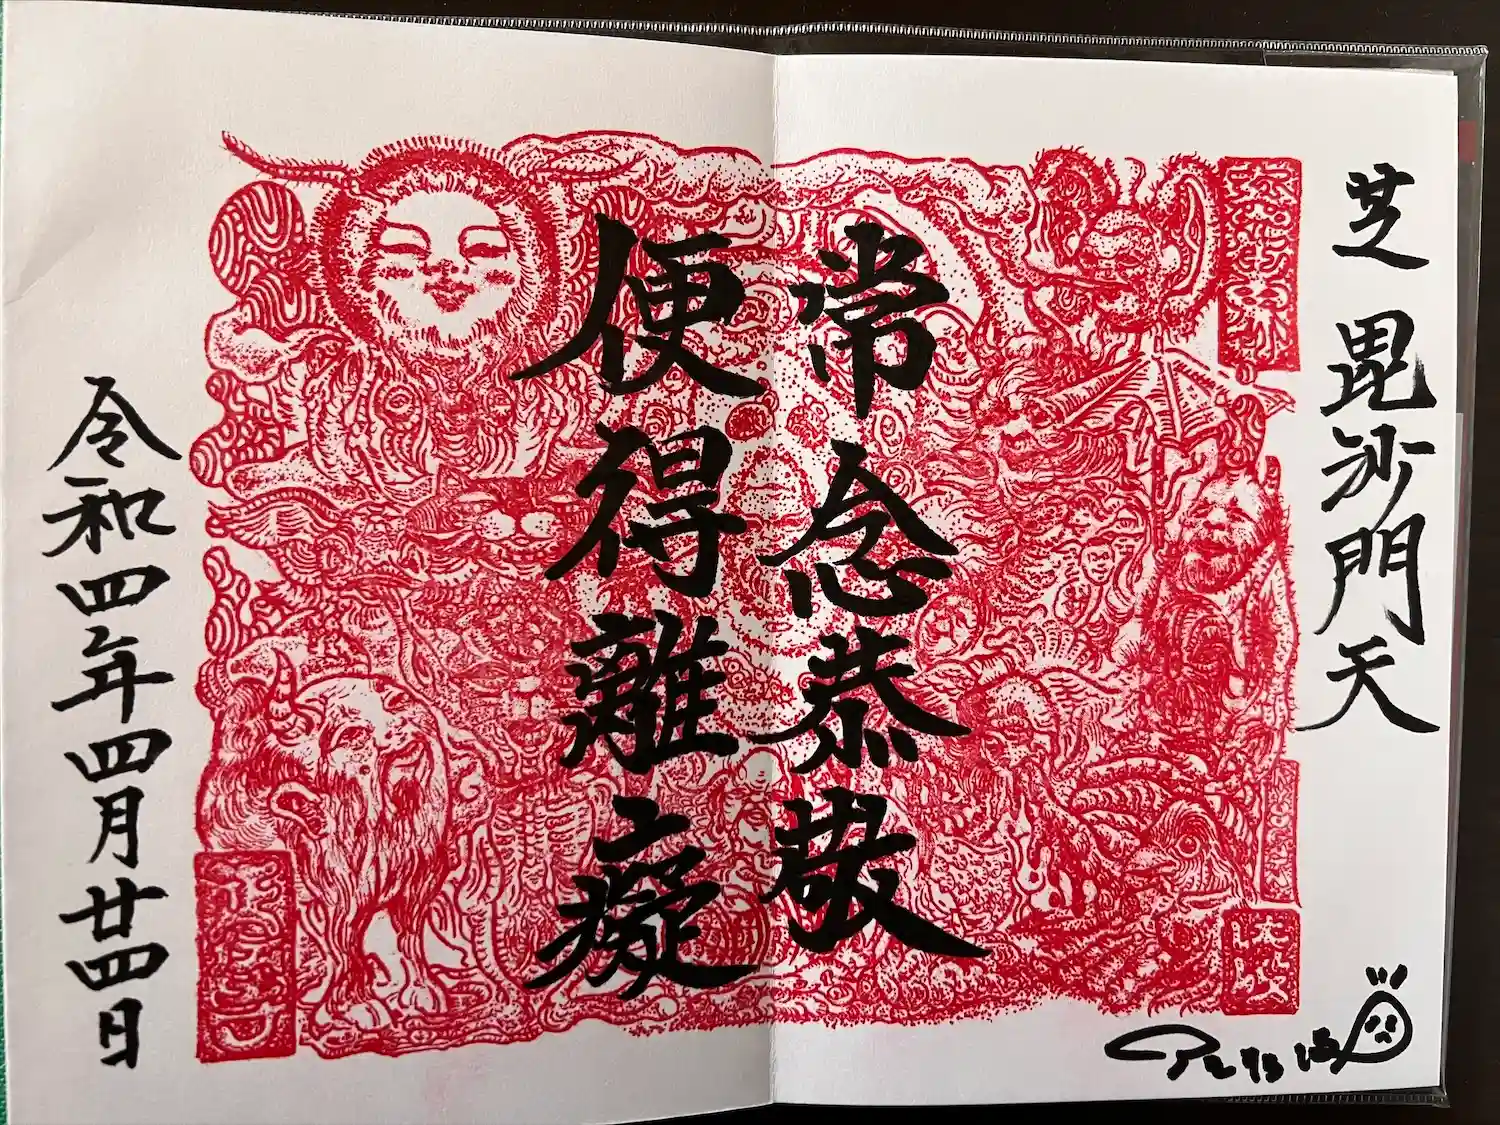 芝毘沙門天
常念恭敬
便得離癡
令和四年四月廿四日